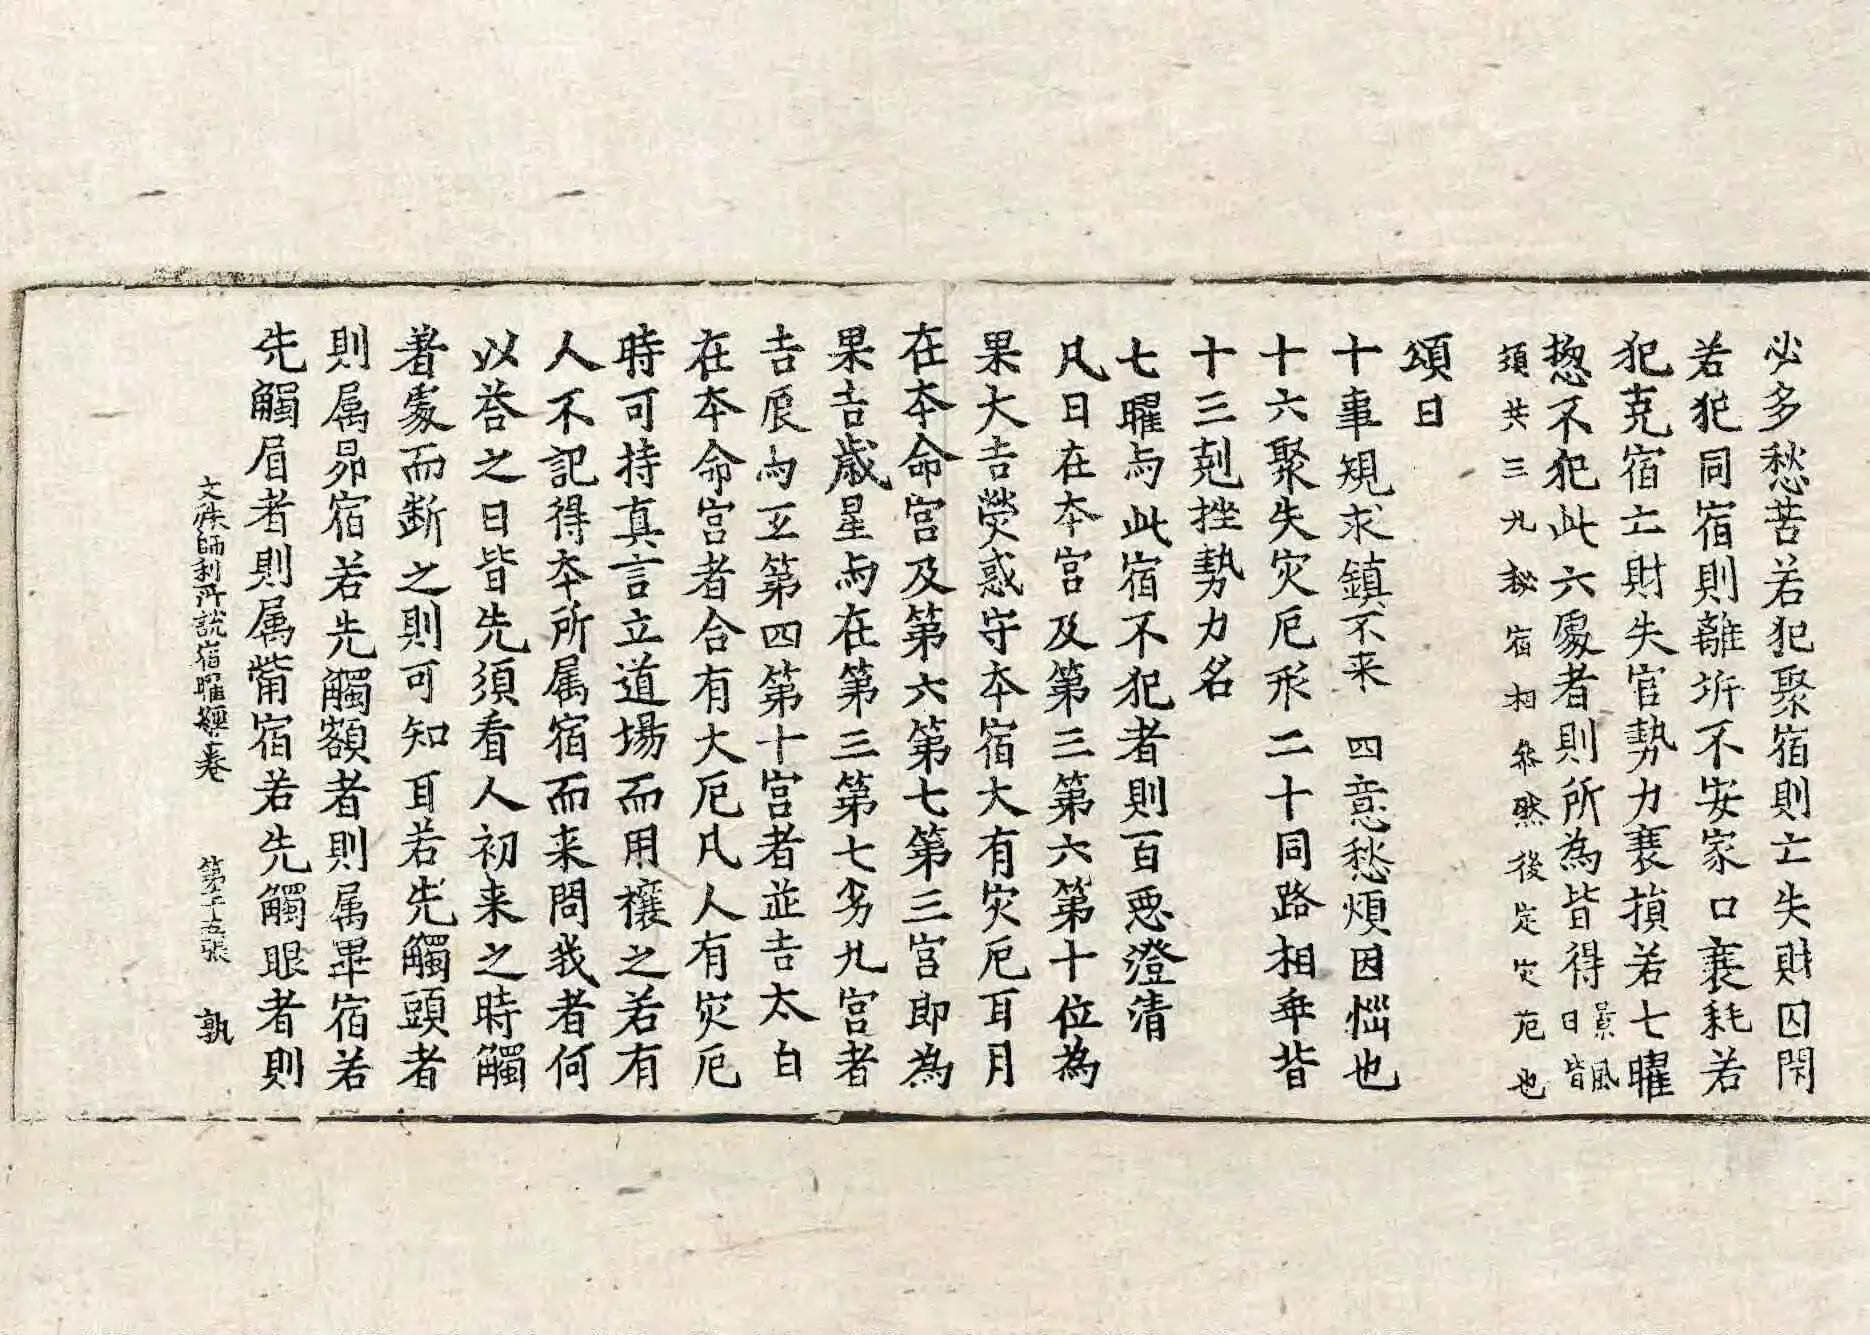 必多愁苦若犯聚宿則亡失財囚閇
若犯同宿則離坼不安家口衰耗若
犯克宿亡財失官勢力衰損若七曜
揔不犯此六處者則所為皆得景風日皆
須共三九秘宿相叅然後定灾厄也
頌曰
十事規求鎮不来 四意愁煩因惱也
十六聚失灾厄形二十同路相乖皆
十三剋挫勢力名
七曜与此宿不犯者則百悪澄清
凡日在本宮及第三第六第十位為
果大吉熒惑守本宿大有灾厄耳月
在本命宮及第六第七第三宮即為
果吉歲星与在第三第七㝵九宮者
吉辰与五第四第十宮者並吉太白
在本命宮者合有大厄凡人有灾厄
時可持真言立道場而用禳之若有
人不記得本所属宿而来問我者何
以荅之曰皆先須看人初来之時觸
着處而断之則可知耳若先觸頭者
則属昴宿若先觸額者則属畢宿若
先觸眉者則属觜宿若先觸眼者則
文殊師利所說宿曜經卷 第二十五張 孰